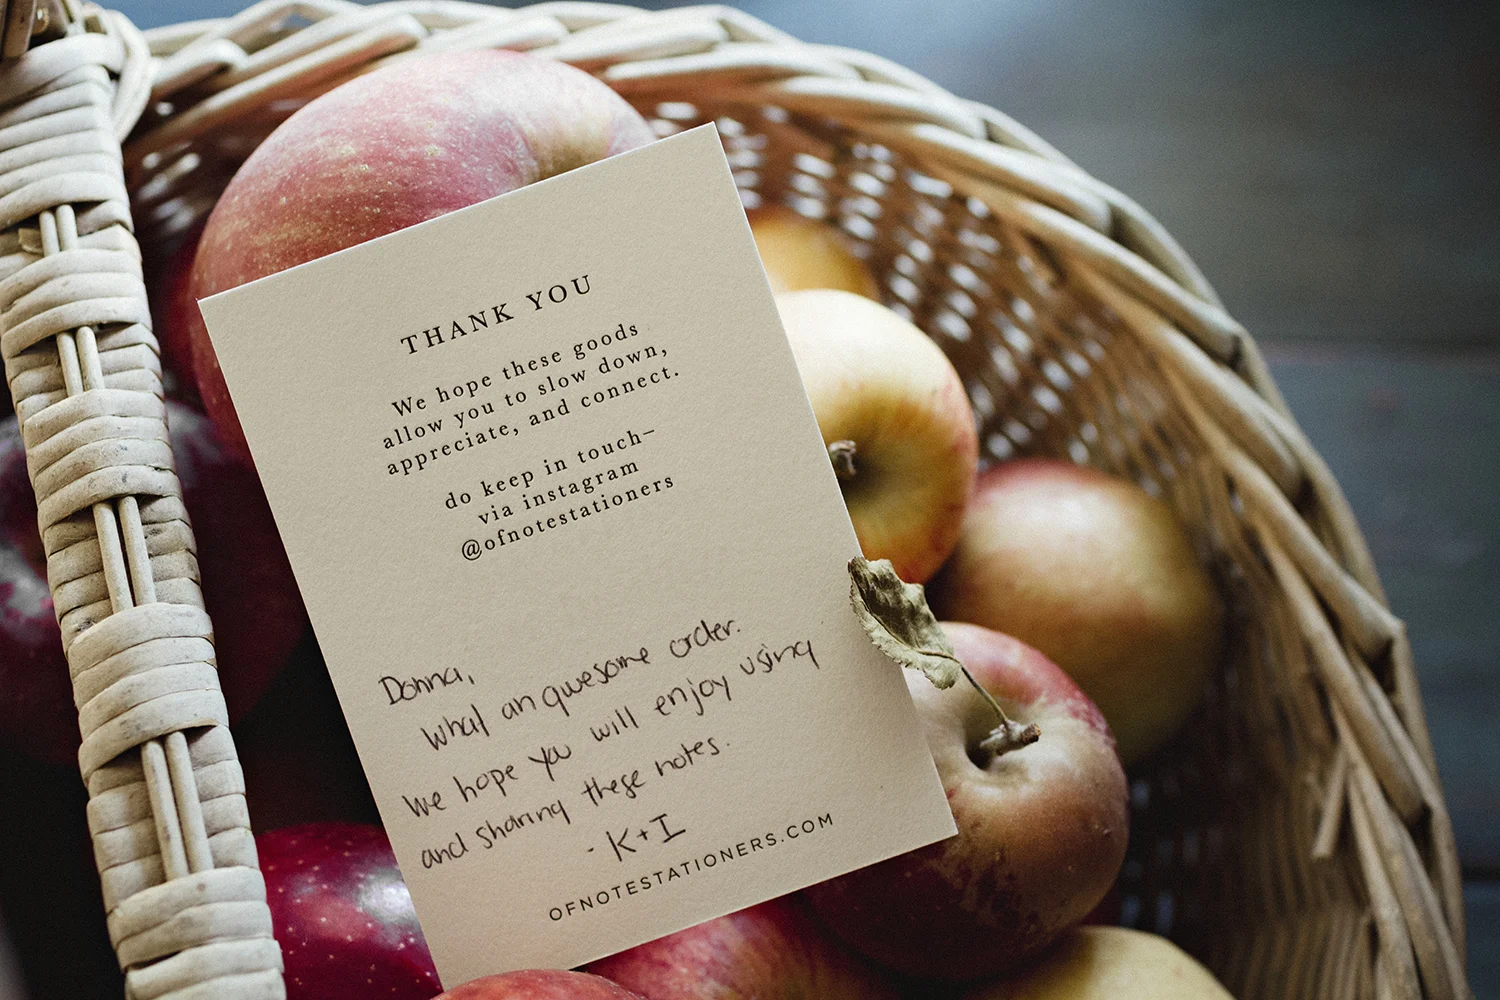 THANK YOU
We hope these goods
allow you to slow down,
appreciate, and connect.
do keep in touch—
via instagram
@ofnotestationers
Donna,
What an awesome order.
We hope you will enjoy using
and sharing these notes.
- K+I
OFNOTESTATIONERS.COM